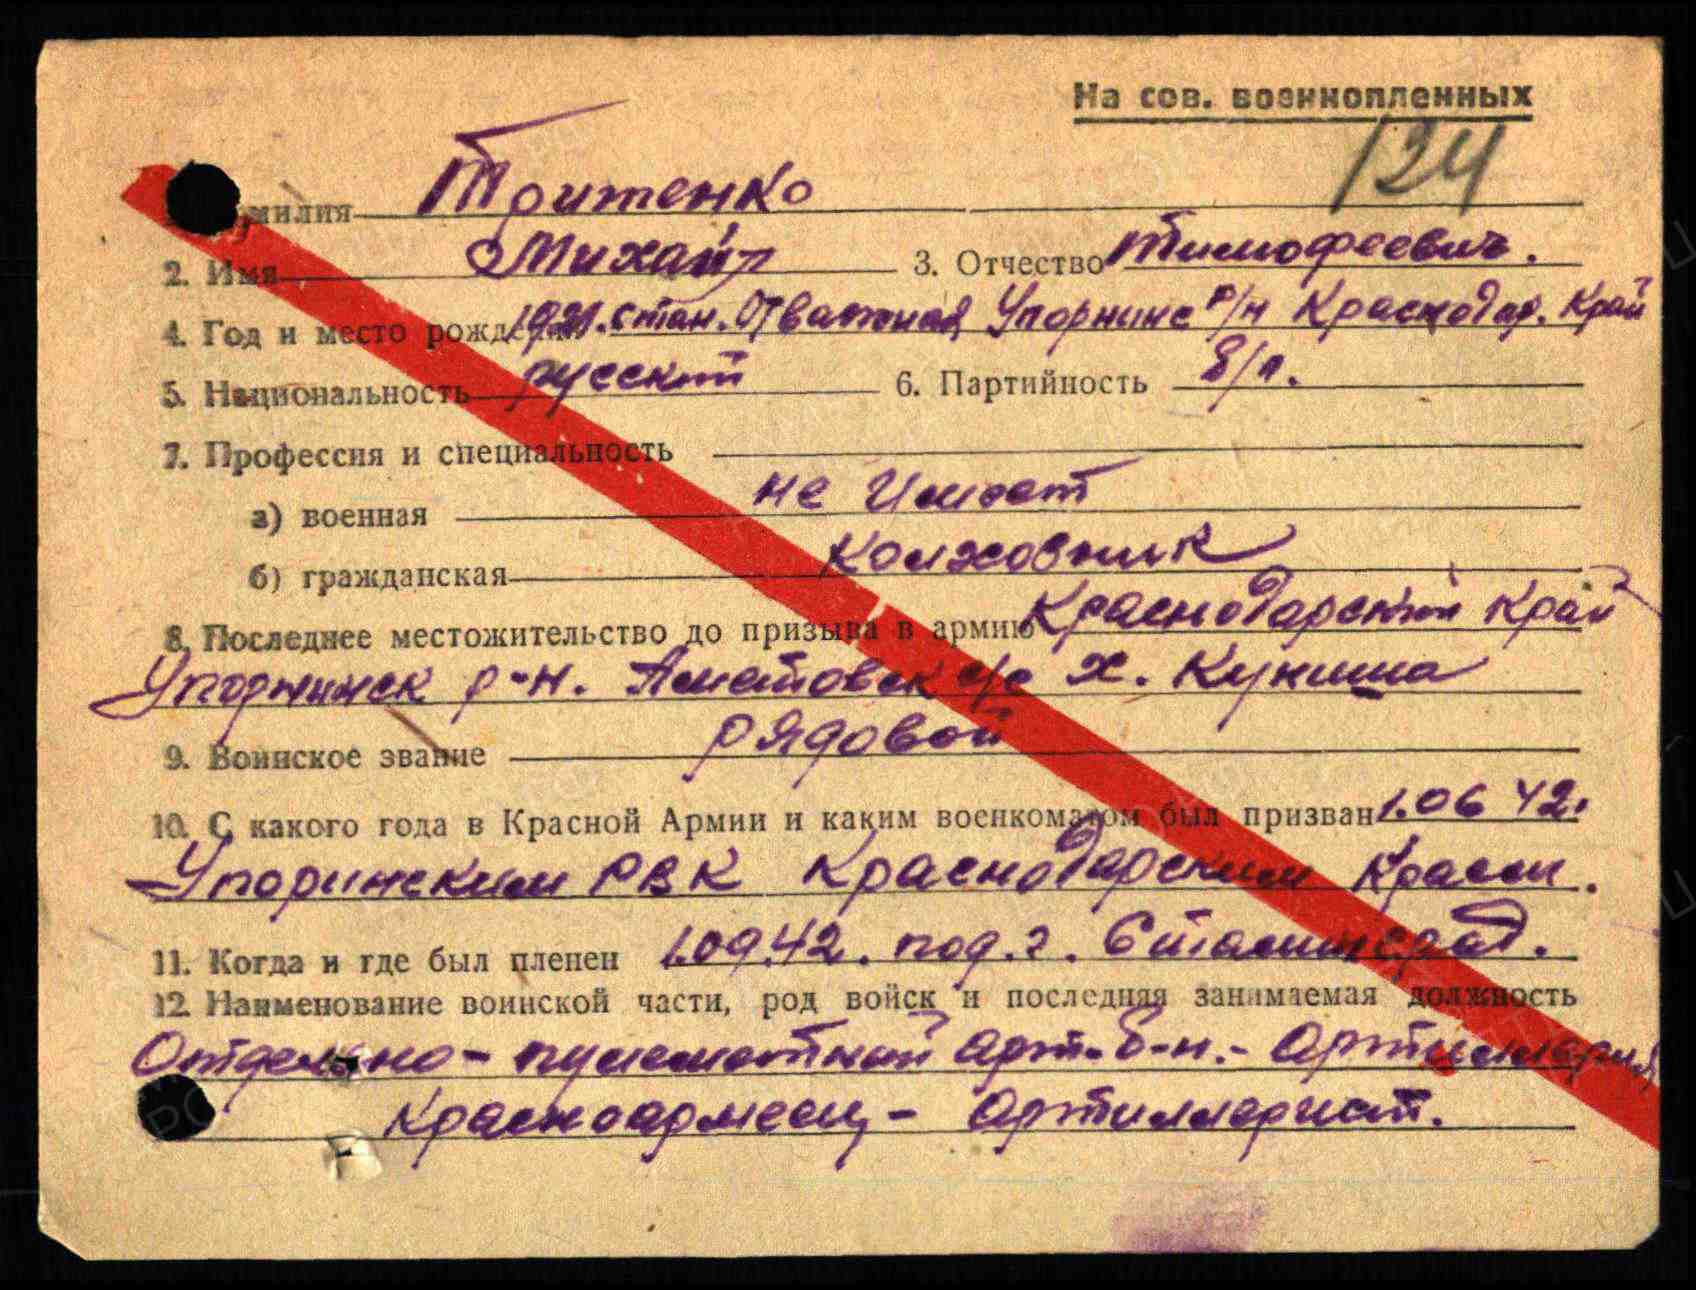 На сов. военнопленных
124
милия Тритенко
2. Имя Михаил 3. Отчество Тимофеевич.
4. Год и место рождения 1921. стан. Отважная Упорнинс р/н Краснодар. Край
5. Национальность русский 6. Партийность б/п.
7. Профессия и специальность
а) военная не имеет
б) гражданская колхозник
8. Последнее местожительство до призыва в армию Краснодарский край
Упорнинск р-н. с/с х. Кунша
9. Воинское звание рядовой
10. С какого года в Красной Армии и каким военкоматом был призван 1.06 42.
Упоринским РВК Краснодарским Краем.
11. Когда и где был пленен 1.09.42. под. г. Сталинград.
12. Наименование воинской части, род войск и последняя занимаемая должность
Отдельно - пулеметной арт. б-н. - Артиллерия
Красноармеец - артиллерист.